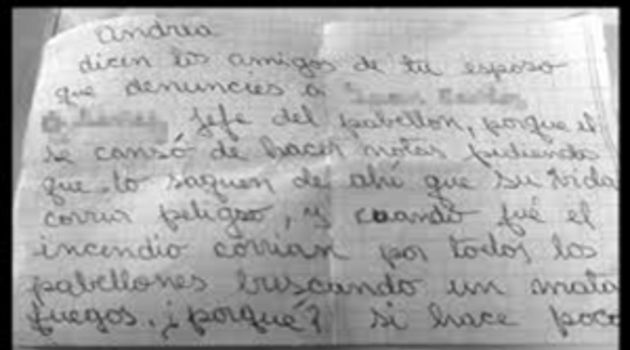 andrea
dicen los amigos de tu esposo
que denuncies a
Jefe del pabellon, porque el
se cansó de hacer notas pidiendo
que lo saquen de ahí que su vida
corria peligro, y cuando fué el
incendio corrian por todos los
pabellones buscando un mata
fuegos. ¿porqué? si hace poco